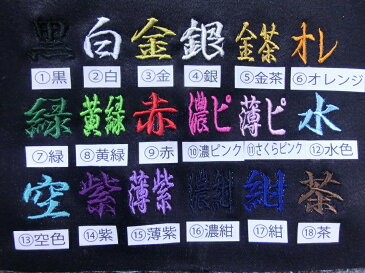 黒 白 金 銀 金茶 オレ
①黒 ②白 ③金 ④銀 ⑤金茶 ⑥オレンジ
緑 黄緑 赤 濃ピ 薄ピ 水
⑦緑 ⑧黄緑 ⑨赤 ⑩濃ピンク ⑪さくらピンク ⑫水色
空 紫 薄紫 濃紺 紺 茶
⑬空色 ⑭紫 ⑮薄紫 ⑯濃紺 ⑰紺 ⑱茶